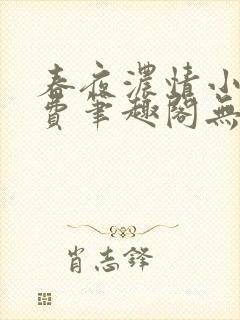 春夜濃情小
費筆趣閣無
肖志鋒